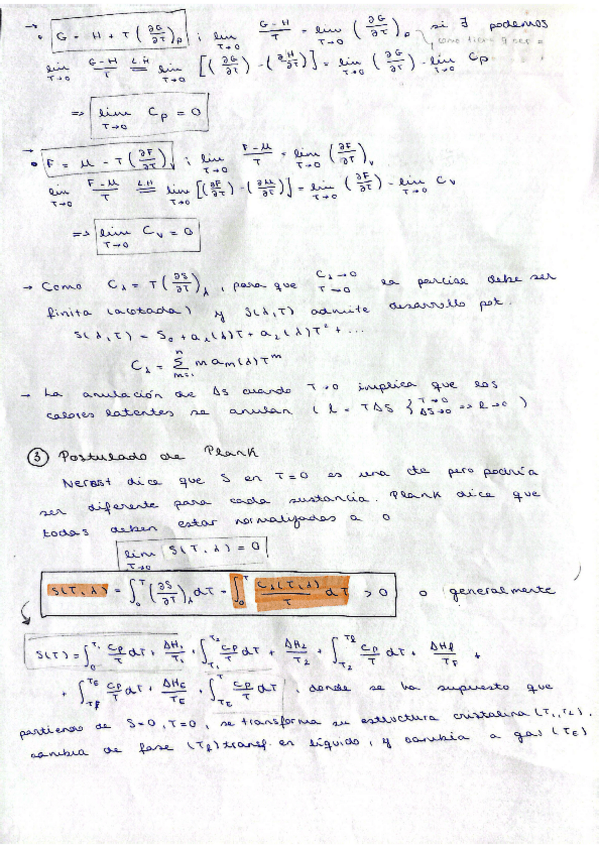 → • G = H + T (∂G/∂T)p ; lim T→0 (G-H)/T = lim T→0 (∂G/∂T)p si ∃ podemos
lim T→0 (G-H)/T =(L'H) lim T→0 [(∂G/∂T) - (∂H/∂T)] = lim T→0 (∂G/∂T) - lim T→0 Cp
⇒ lim T→0 Cp = 0
→ • F = U - T (∂F/∂T)v ; lim T→0 (F-U)/T = lim T→0 (∂F/∂T)v
lim T→0 (F-U)/T =(L'H) lim T→0 [(∂F/∂T) - (∂U/∂T)] = lim T→0 (∂F/∂T) - lim T→0 Cv
⇒ lim T→0 Cv = 0
→ Como Cλ = T (∂S/∂T)λ , para que Cλ→0 T→0 la parcial debe ser
finita (acotada) y S(λ,T) admite desarrollo pot.
S(λ,T) = S0 + a1(λ)T + a2(λ)T² + ...
Cλ = Σ m=1 n m am(λ)T^m
→ La anulación de ΔS cuando T→0 implica que los
calores latentes se anulan (l = TΔS { T→0 ΔS→0 ⇒ l→0 )
③ Postulado de Plank
Nerst dice que S en T=0 es una cte pero podría
ser diferente para cada sustancia. Plank dice que
todas deben estar normalizadas a 0
lim T→0 S(T,λ) = 0
S(T,λ) = ∫0T (∂S/∂T)λ dT = ∫0T Cλ(T,λ)/T dT > 0 o generalmente
S(T) = ∫0T1 Cp/T dT + ΔH1/T1 + ∫T1T2 Cp/T dT + ΔH2/T2 + ∫T2Tf Cp/T dT + ΔHf/TF +
+ ∫TfTE Cp/T dT + ΔHE/TE + ∫TET Cp/T dT , donde se ha supuesto que
partiendo de S=0, T=0, se transforma su estructura cristalina (T1,T2).
cambia de fase (Tf) transf. en líquido, y cambia a gas (TE)